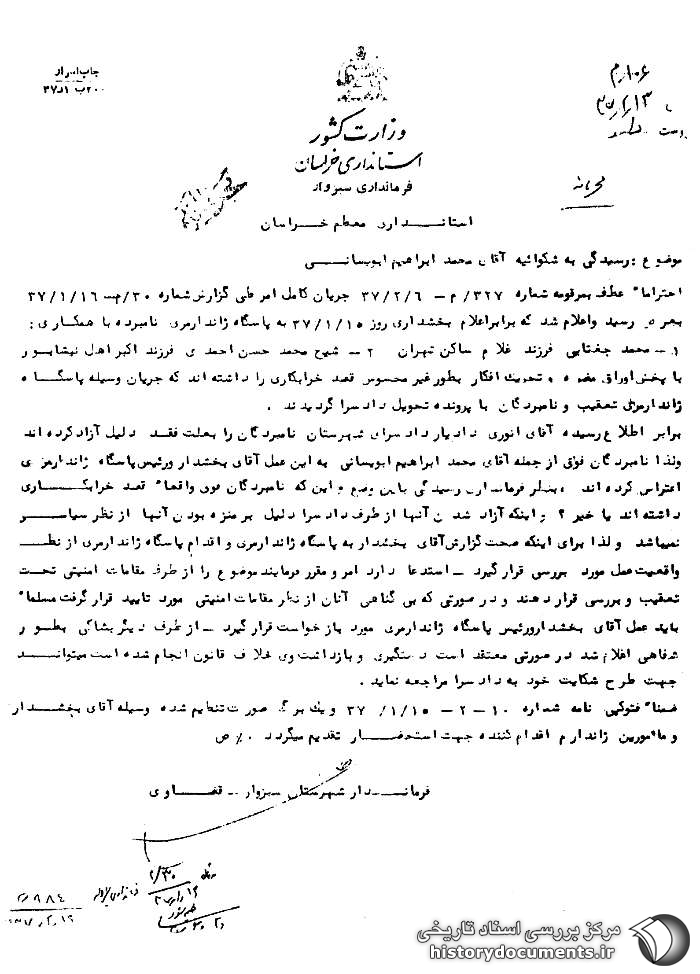 چاپ اسرار
۱۰۶/م
۳۷/۲/۱۳
وزارت کشور
استانداری خراسان
فرمانداری سبزوار
محرمانه
استانداری معظم خراسان
موضوع : رسیدگی به شکوائیه آقای محمد ابراهیم ابویسانی
احتراما" عطف بمرقومه شماره ۳۲۷/م – ۳۷/۲/۶ جریان کامل امر طی گزارش شماره ۳۰/م – ۳۷/۱/۱۶
بعرض رسید واعلام شد که برابر اعلام بخشداری روز ۳۷/۱/۱۵ به پاسگاه ژاندارمری نامبرده با همکاری :
۱– محمد جغتایی فرزند غلام ساکن تهران ۲– شیخ محمد حسن احمدی فرزند اکبر اهل نیشابور
با پخش اوراق مضره و تحریک افکار بطور غیر محسوس قصد خرابکاری را داشته اند که جریان وسیله پاسگاه
ژاندارمری تعقیب و نامبردگان با پرونده تحویل دادسرا گردیدند .
برابر اطلاع رسیده آقای انوری دادیار دادسرای شهرستان نامبردگان را بعلت فقد دلیل آزاد کرده اند
ولذا نامبردگان فوق از جمله آقای محمد ابراهیم ابویسانی به این عمل آقای بخشدار ورئیس پاسگاه ژاندارمری
اعتراض کرده اند ، بنظر فرمانداری رسیدگی باین وضع و این که نامبردگان فوق واقعا" قصد خرابکاری
داشته اند یا خیر ؟ و اینکه آزاد شدن آنها از طرف دادسرا دلیل بر منزه بودن آنها از نظر سیاسی
نمیباشد ولذا برای اینکه صحت گزارش آقای بخشدار به پاسگاه ژاندارمری و اقدام پاسگاه ژاندارمری از نظر
واقعیت عمل مورد بررسی قرار گیرد – استدعا دارد امر و مقرر فرمایند موضوع را از طرف مقامات امنیتی تحت
تعقیب و بررسی قرار دهند و در صورتی که بی گناهی آنان از نظر مقامات امنیتی مورد تایید قرار گرفت مسلما"
باید عمل آقای بخشدار ورئیس پاسگاه ژاندارمری مورد بازخواست قرار گیرد – از طرف دیگر بشاکی بطور
شفاهی اعلام شد در صورتی معتقد است دستگیری و بازداشت وی خلاف قانون انجام شده است میتواند
جهت طرح شکایت خود به دادسرا مراجعه نماید .
ضمنا" فتوکپی نامه شماره ۱۰–۲–۳۷/۱/۱۵ و یک برگ صورت تنظیم شده وسیله آقای بخشدار
و مامورین ژاندارم اقدام کننده جهت استحضار تقدیم میگردد . %ص
فرماندار شهرستان سبزوار – قضاوی
مرکز بررسی اسناد تاریخی
historydocuments.ir